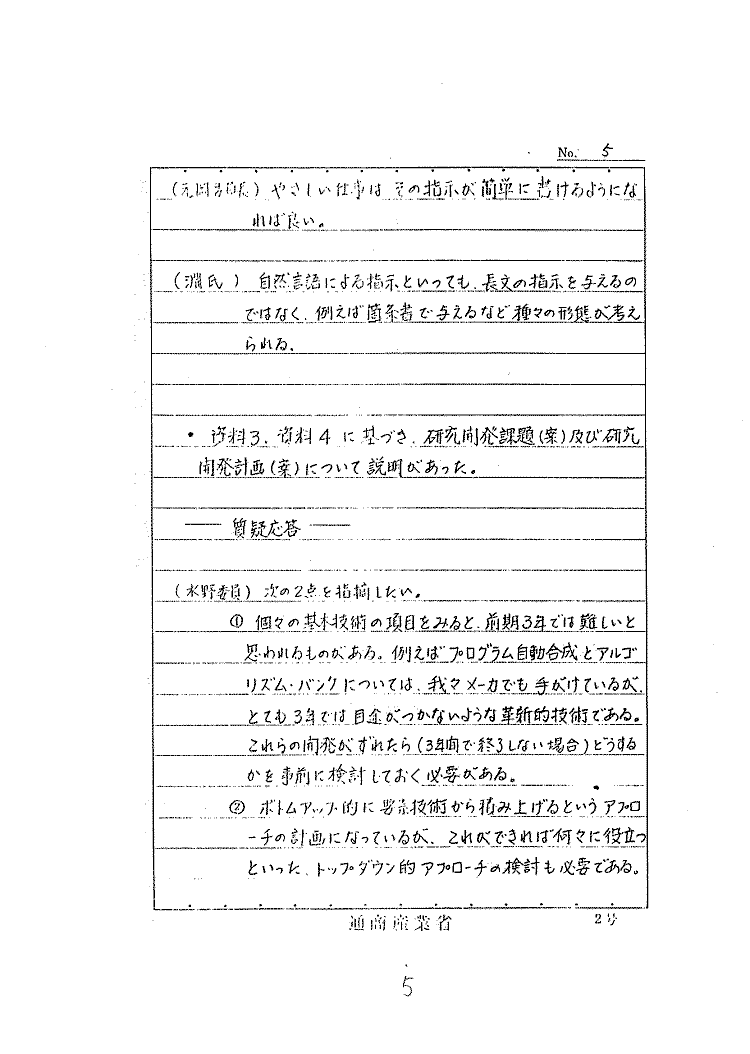 No. 5
(元岡部長) やさしい仕事は その指示が簡単に書けるようにな
れば良い。
(淵氏) 自然言語による指示といっても、長文の指示を与えるの
ではなく、例えば箇条書で与えるなど種々の形態が考え
られる。
・ 資料3、資料4に基づき、研究開発課題(案)及び研究
開発計画(案)について説明があった。
―― 質疑応答 ――
(水野委員) 次の2点を指摘したい。
① 個々の基本技術の項目をみると、前期3年では難しいと
思われるものがある。例えばプログラム自動合成とアルゴ
リズム・バンクについては、我々メーカでも手がけているが、
とても3年では目途がつかないような革新的技術である。
これらの開発がずれたら(3年間で終了しない場合)どうする
かを事前に検討しておく必要がある。
② ボトムアップ的に要素技術から積み上げるというアプロ
ーチの計画になっているが、これができれば何々に役立つ
といった、トップダウン的アプローチの検討も必要である。
通商産業省 2号
5